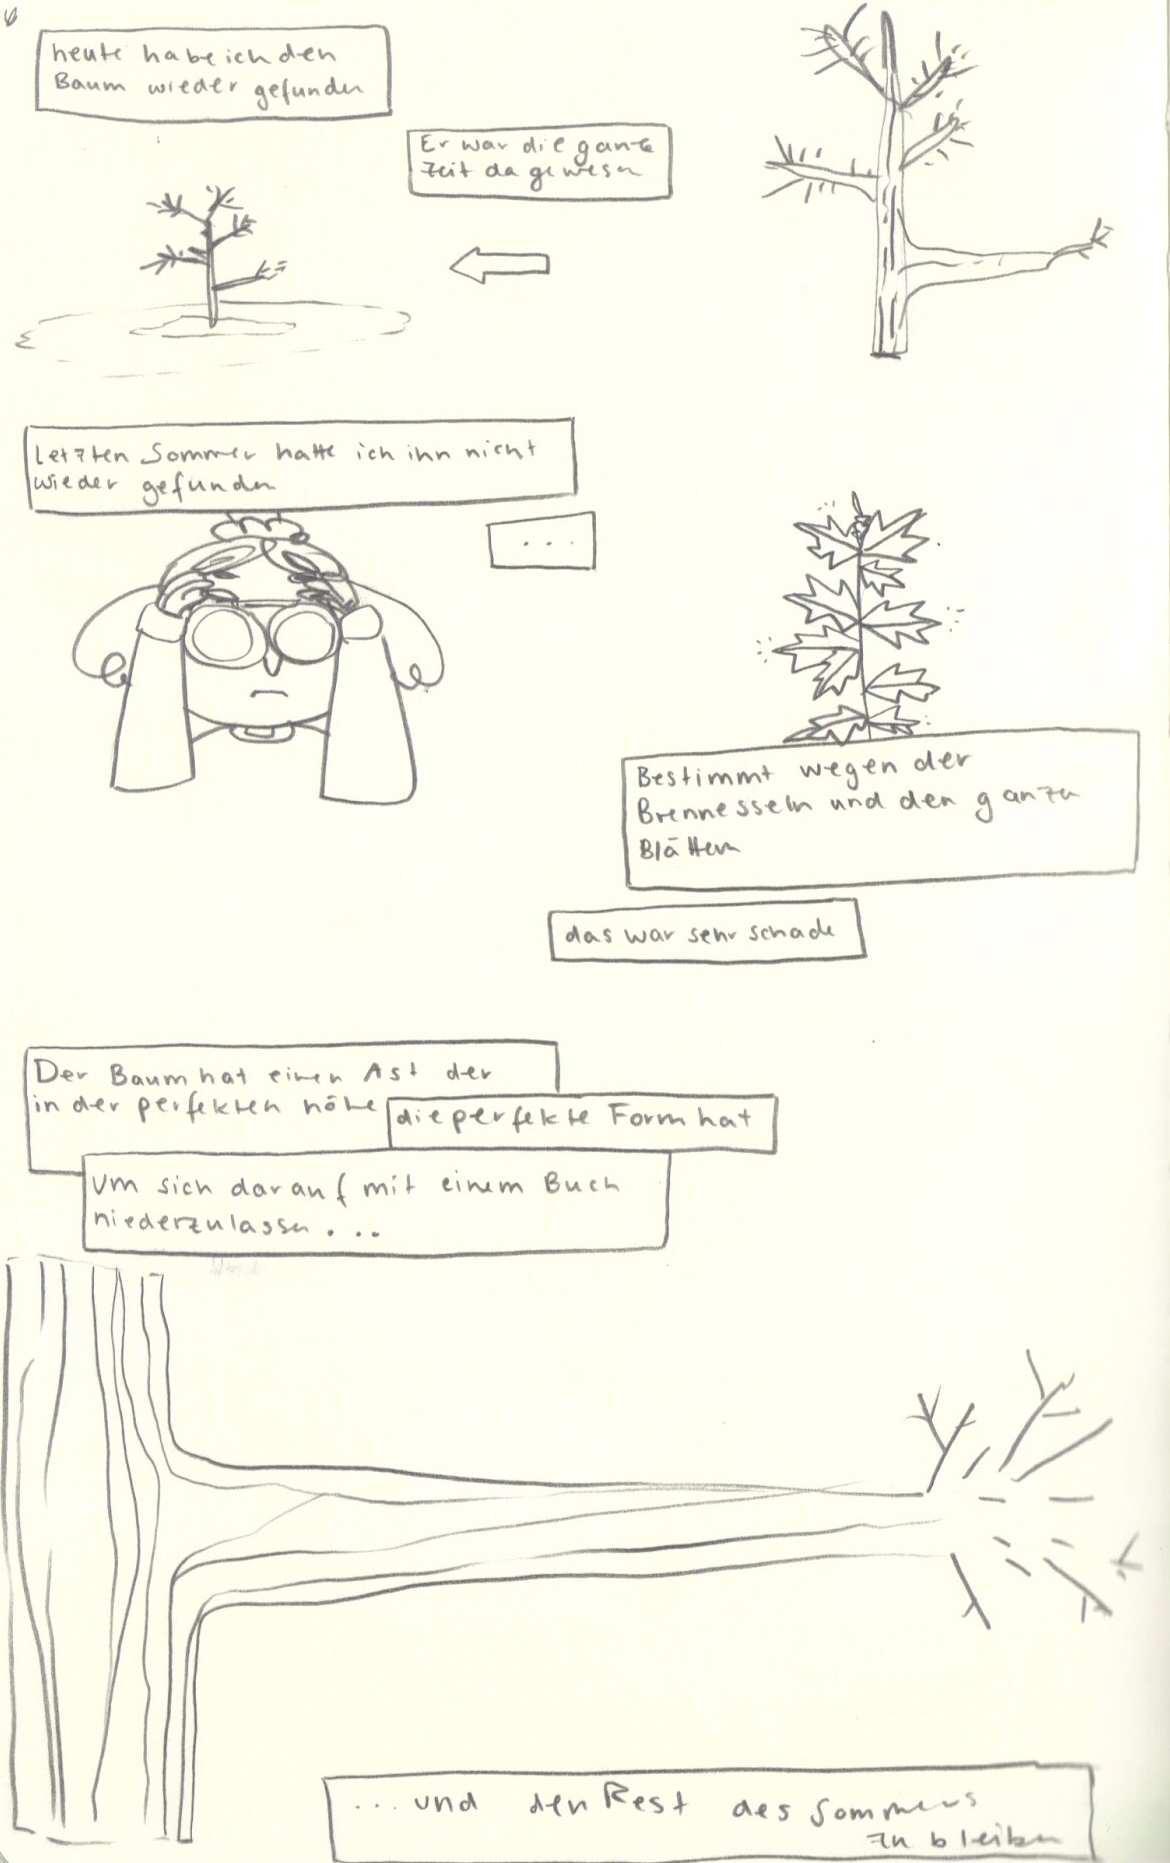 heute habe ich den
Baum wieder gefunden
Er war die ganze
Zeit da gewesen
Letzten Sommer hatte ich ihn nicht
wieder gefunden
...
Bestimmt wegen der
Brennesseln und den ganzen
Blättern
das war sehr schade
Der Baum hat einen Ast der
in der perfekten höhe
die perfekte Form hat
Um sich darauf mit einem Buch
niederzulassen...
...und den Rest des Sommers
zu bleiben